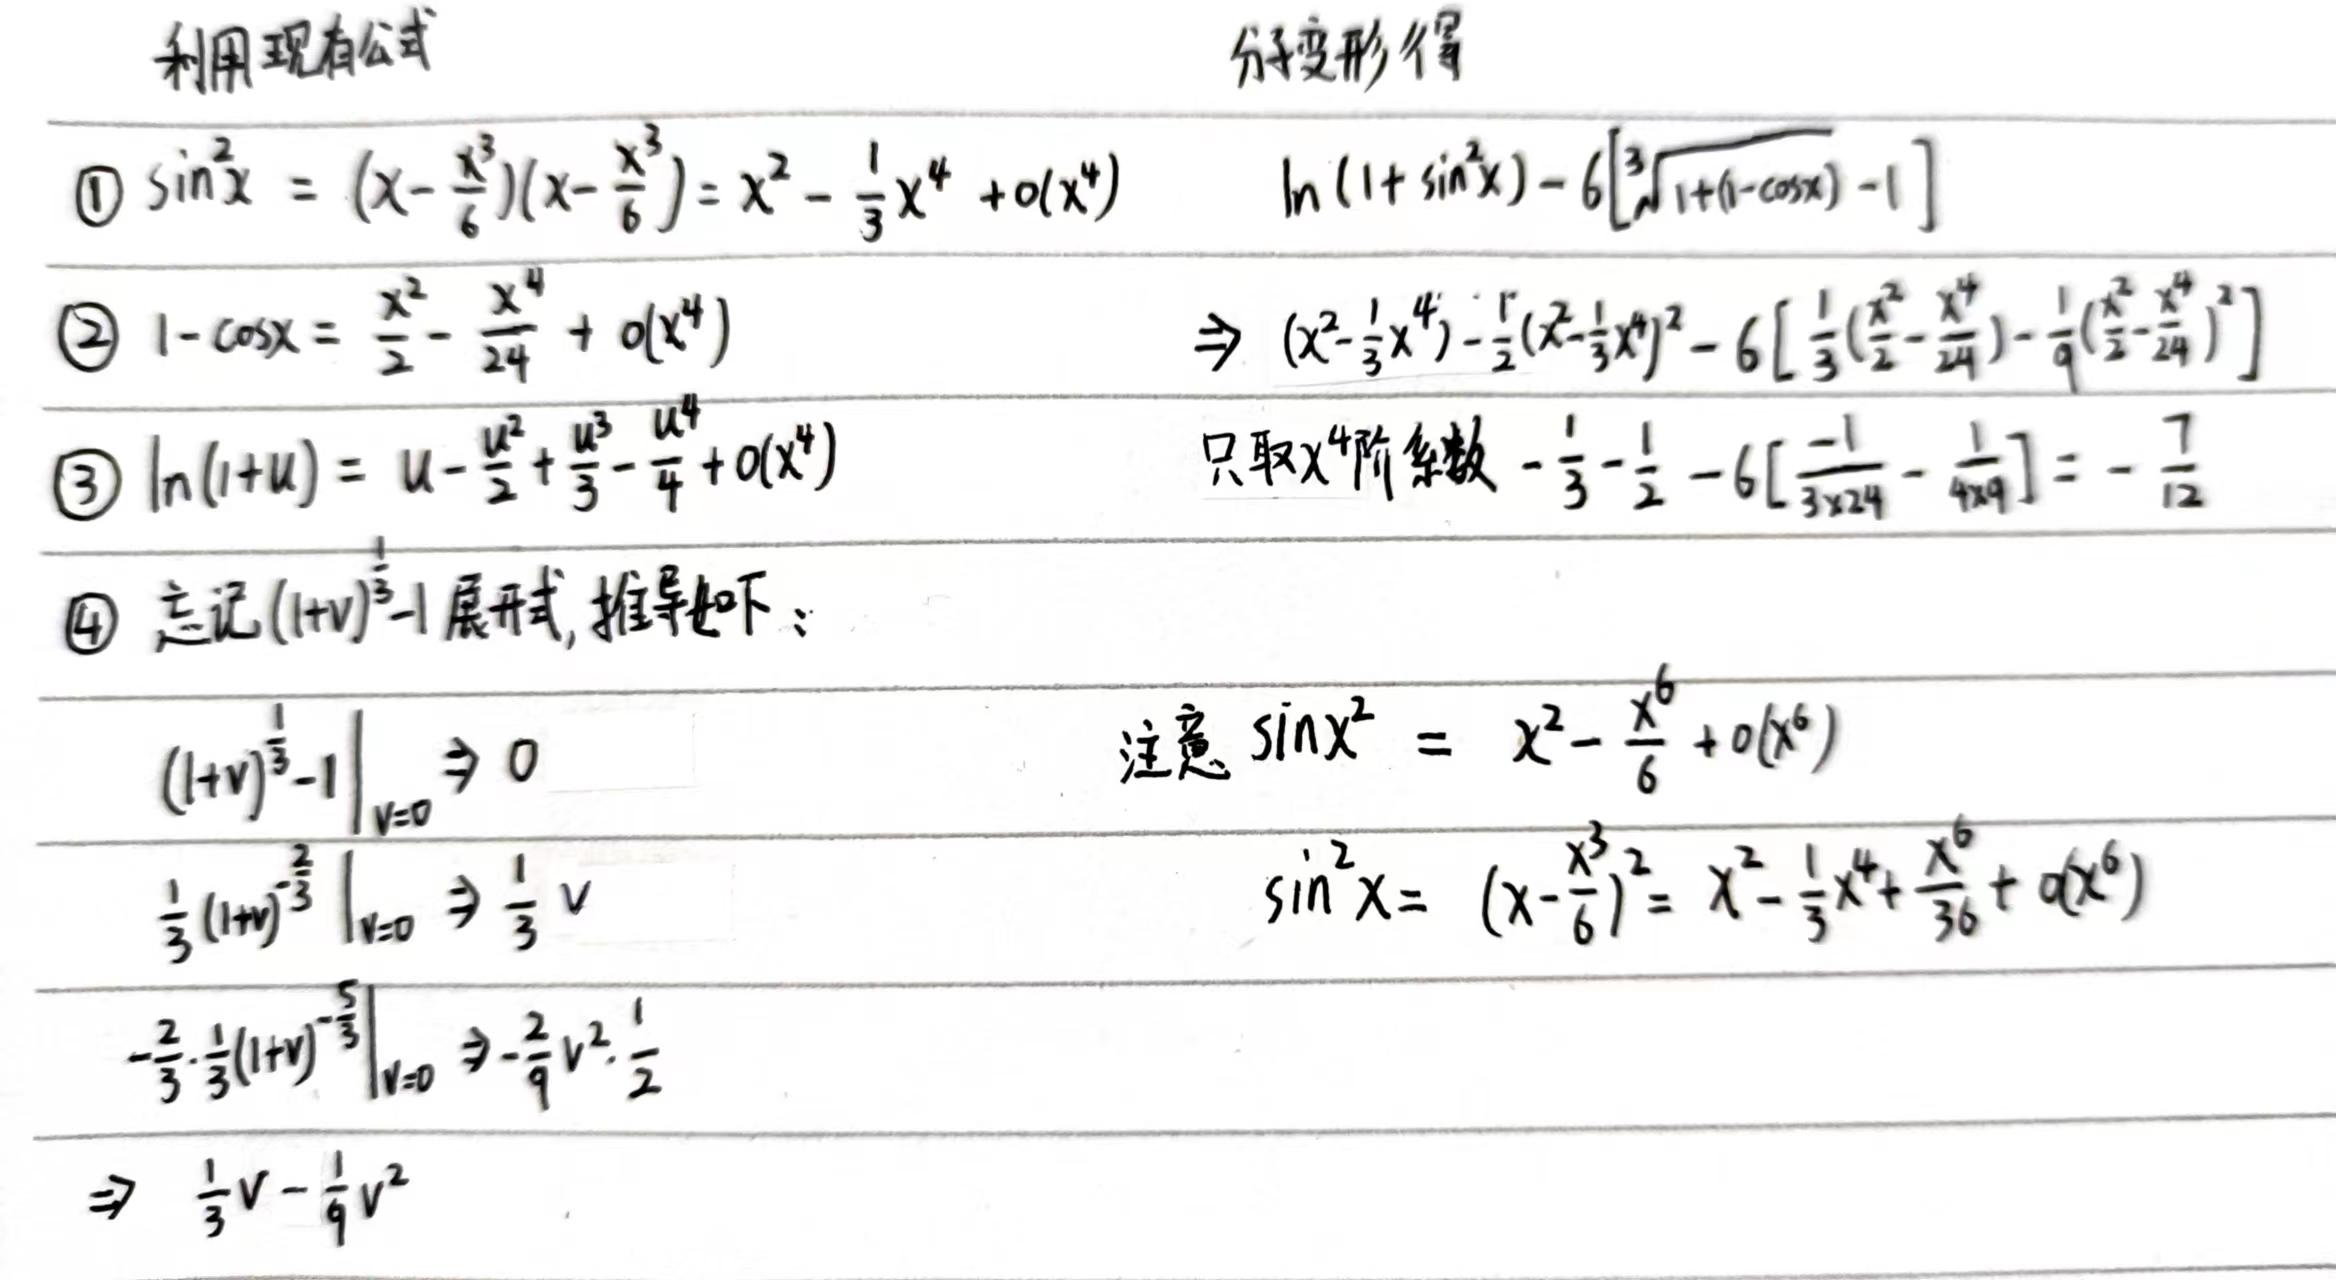 利用现有公式
① sin²x = (x - x³/6)(x - x³/6) = x² - 1/3 x⁴ + o(x⁴)
② 1 - cosx = x²/2 - x⁴/24 + o(x⁴)
③ ln(1+u) = u - u²/2 + u³/3 - u⁴/4 + o(x⁴)
④ 忘记(1+v)^(1/3) - 1 展开式, 推导如下:
(1+v)^(1/3) - 1 |_(v=0) ⇒ 0
1/3 (1+v)^(-2/3) |_(v=0) ⇒ 1/3 v
-2/3 · 1/3 (1+v)^(-5/3) |_(v=0) ⇒ -2/9 v² · 1/2
⇒ 1/3 v - 1/9 v²
分子变形得
ln(1 + sin²x) - 6[∛(1+(1-cosx)) - 1]
⇒ (x² - 1/3 x⁴) - 1/2 (x² - 1/3 x⁴)² - 6[1/3 (x²/2 - x⁴/24) - 1/9 (x²/2 - x⁴/24)²]
只取x⁴阶系数 -1/3 - 1/2 - 6[-1/(3×24) - 1/(4×9)] = -7/12
注意 sinx² = x² - x⁶/6 + o(x⁶)
sin²x = (x - x³/6)² = x² - 1/3 x⁴ + x⁶/36 + o(x⁶)